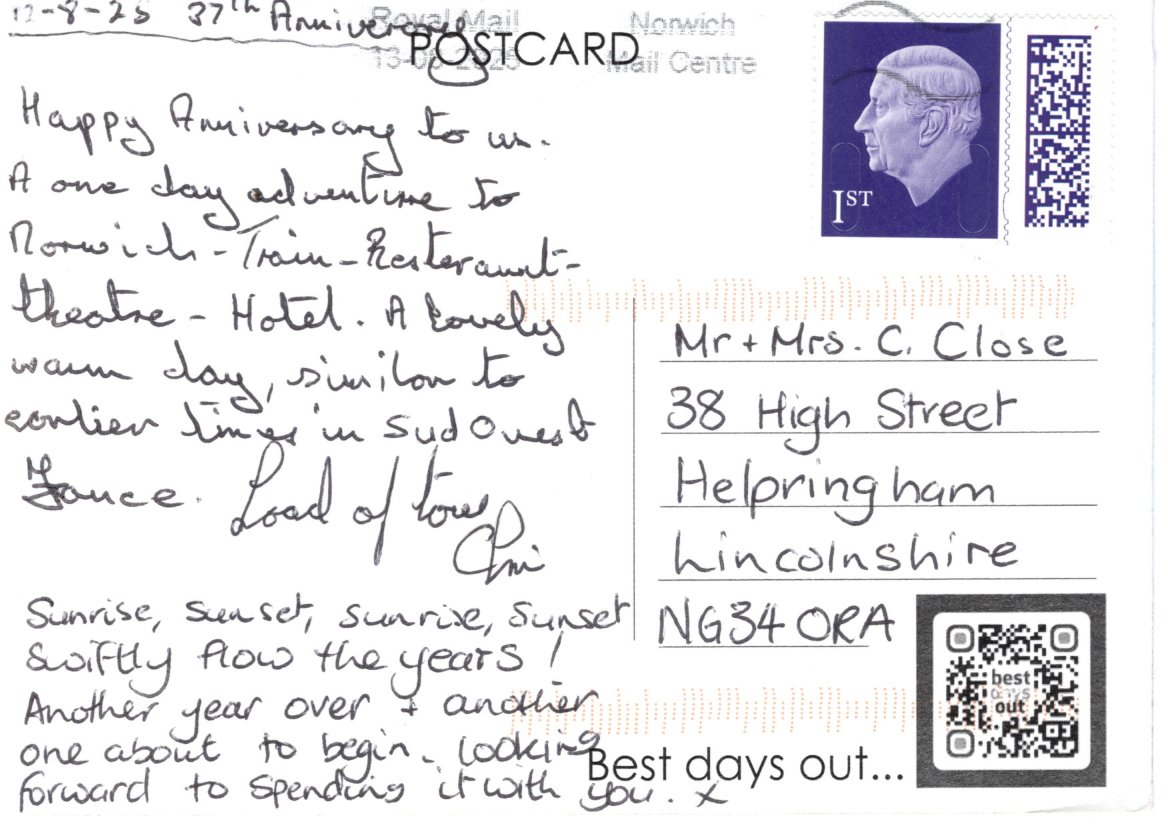 12-8-25 37th Anniversary
Royal Mail
13-08-2025
Norwich
Mail Centre
POSTCARD
1ST
Happy Anniversary to us.
A one day adventure to
Norwich - Train - Resteraunt -
theatre - Hotel. A lovely
warm day, similar to
earlier times in Sud Ouest
France. Load of love
Sunrise, sunset, sunrise, sunset
Swiftly flow the years!
Another year over + another
one about to begin. Looking
forward to spending it with you. x
Mr + Mrs. C. Close
38 High Street
Helpringham
Lincolnshire
NG34 0RA
best
days
out
Best days out...